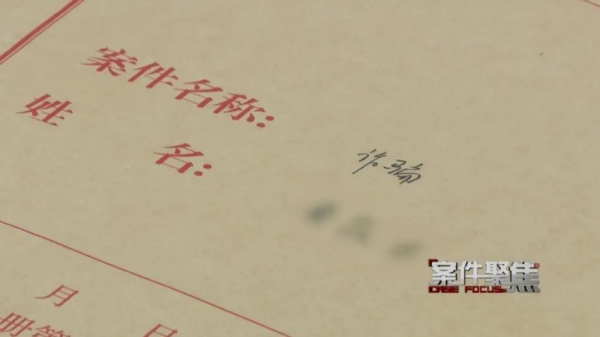 案件名称:
诈骗
姓名:
案件聚焦
CASE FOCUS
月 日
册第